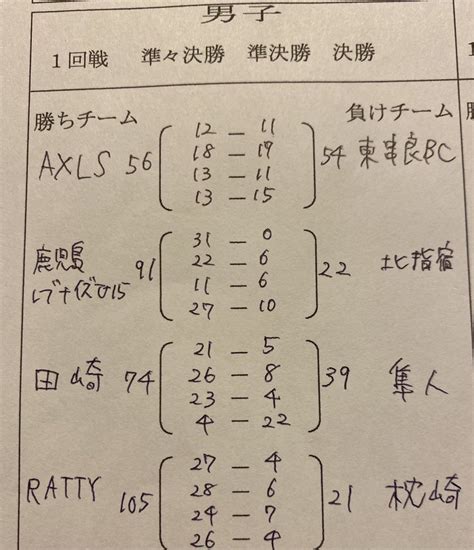 男子
1回戦 準々決勝 準決勝 決勝
勝ちチーム 負けチーム
12 — 11
18 — 17
AXLS 56 54 東串良BC
13 — 11
13 — 15
31 — 0
鹿児島 22 — 6
91 22 北指宿
レブナイズU15 11 — 6
27 — 10
21 — 5
26 — 8
田崎 74 39 隼人
23 — 4
4 — 22
27 — 4
28 — 6
RATTY 105 21 枕崎
24 — 7
26 — 4